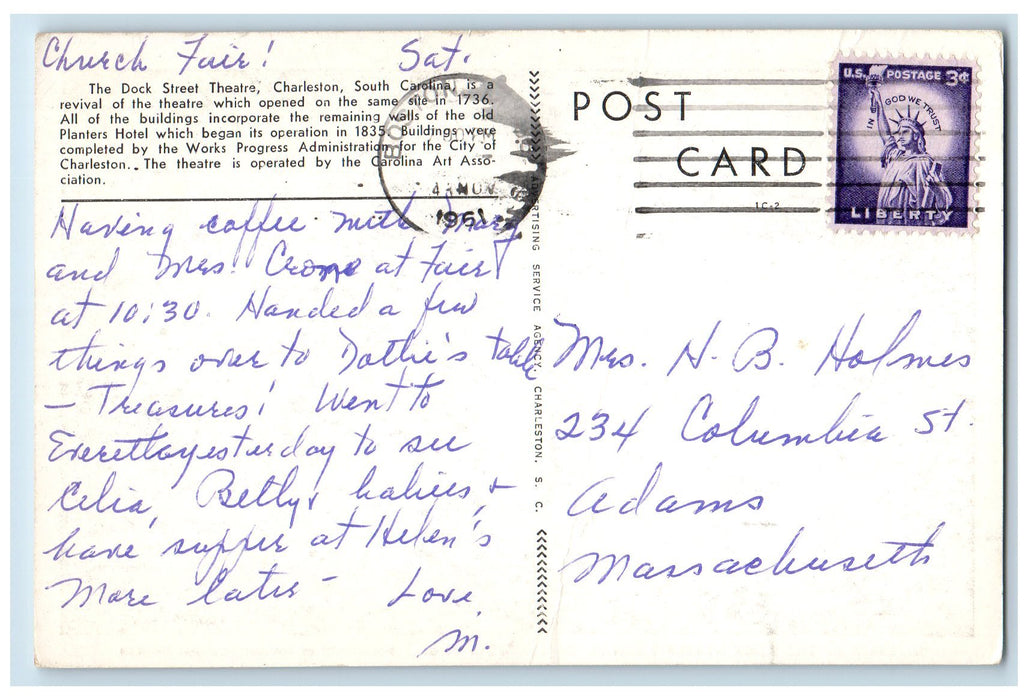 Church Fair! Sat.
The Dock Street Theatre, Charleston, South Carolina, is a
revival of the theatre which opened on the same site in 1736.
All of the buildings incorporate the remaining walls of the old
Planters Hotel which began its operation in 1835. Buildings were
completed by the Works Progress Administration for the City of
Charleston. The theatre is operated by the Carolina Art Asso-
ciation.
Having coffee with Mary
and Mrs. at Fair
at 10:30. Handed a few
things over to Dottie's table
— Treasures! Went to
Everett yesterday to see
Celia, Betty & babies, &
have supper at Helen's
More later — Love,
M.
BOSTON
4 NOV
1951
ADVERTISING SERVICE AGENCY, CHARLESTON, S. C.
POST
CARD
1C-2
U.S. POSTAGE 3¢
IN GOD WE TRUST
LIBERTY
Mrs. H. B. Holmes
234 Columbia St.
Adams
Massachusetts